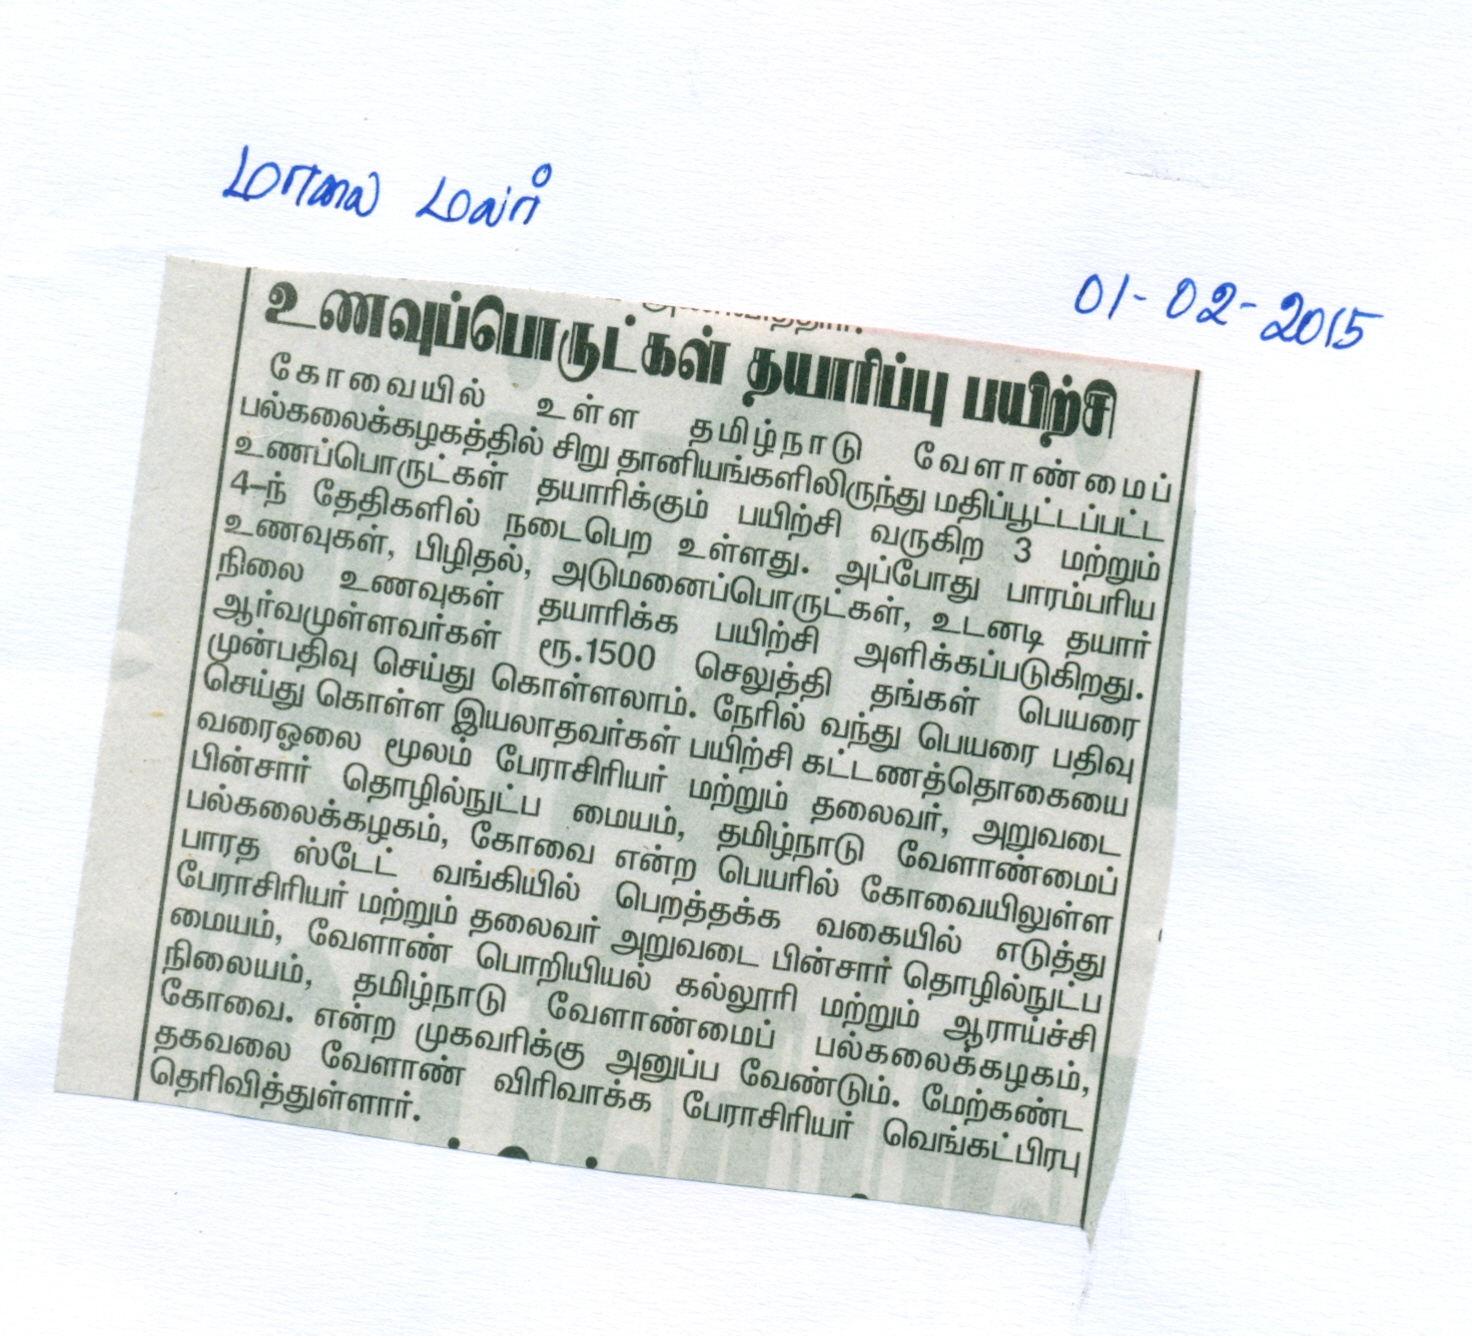 மாலை மலர்
01-02-2015
உணவுப்பொருட்கள் தயாரிப்பு பயிற்சி
கோவையில் உள்ள தமிழ்நாடு வேளாண்மைப்
பல்கலைக்கழகத்தில் சிறு தானியங்களிலிருந்து மதிப்பூட்டப்பட்ட
உணப்பொருட்கள் தயாரிக்கும் பயிற்சி வருகிற 3 மற்றும்
4–ந் தேதிகளில் நடைபெற உள்ளது. அப்போது பாரம்பரிய
உணவுகள், பிழிதல், அடுமனைப்பொருட்கள், உடனடி தயார்
நிலை உணவுகள் தயாரிக்க பயிற்சி அளிக்கப்படுகிறது.
ஆர்வமுள்ளவர்கள் ரூ.1500 செலுத்தி தங்கள் பெயரை
முன்பதிவு செய்து கொள்ளலாம். நேரில் வந்து பெயரை பதிவு
செய்து கொள்ள இயலாதவர்கள் பயிற்சி கட்டணத்தொகையை
வரைஓலை மூலம் பேராசிரியர் மற்றும் தலைவர், அறுவடை
பின்சார் தொழில்நுட்ப மையம், தமிழ்நாடு வேளாண்மைப்
பல்கலைக்கழகம், கோவை என்ற பெயரில் கோவையிலுள்ள
பாரத ஸ்டேட் வங்கியில் பெறத்தக்க வகையில் எடுத்து
பேராசிரியர் மற்றும் தலைவர் அறுவடை பின்சார் தொழில்நுட்ப
மையம், வேளாண் பொறியியல் கல்லூரி மற்றும் ஆராய்ச்சி
நிலையம், தமிழ்நாடு வேளாண்மைப் பல்கலைக்கழகம்,
கோவை. என்ற முகவரிக்கு அனுப்ப வேண்டும். மேற்கண்ட
தகவலை வேளாண் விரிவாக்க பேராசிரியர் வெங்கட்பிரபு
தெரிவித்துள்ளார்.